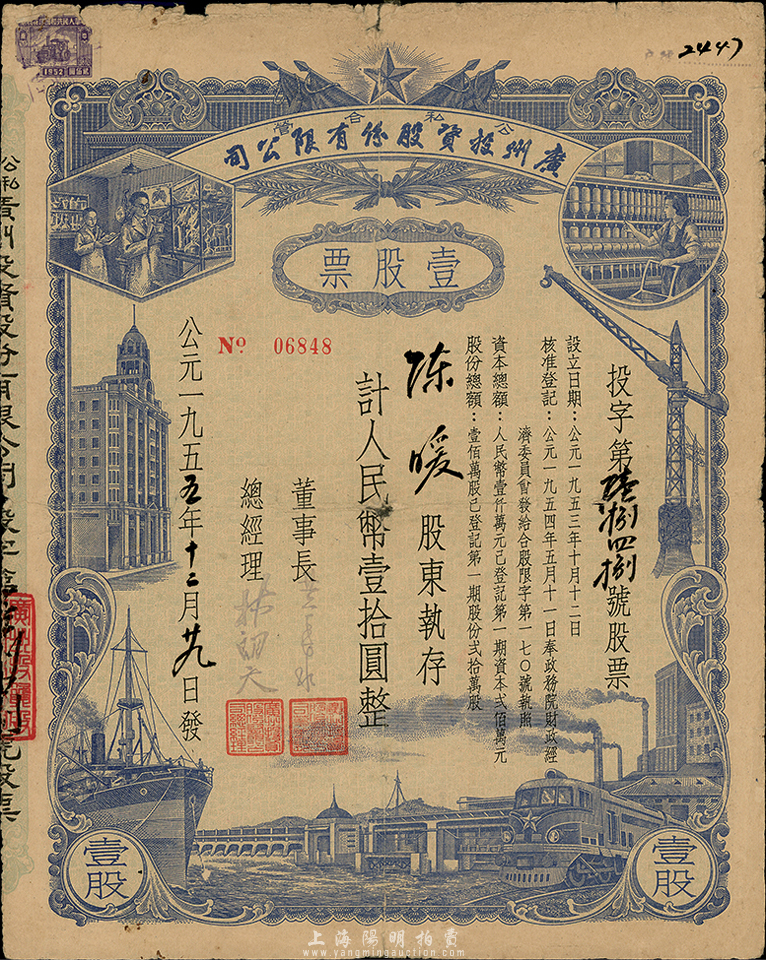 2447
1952
公私合營
廣州投資股份有限公司
壹股票
投字第陸捌四捌號股票
設立日期：公元一九五三年十月十二日
核准登記：公元一九五四年五月十一日奉政務院財政經
濟委員會發給合股限字第一七〇號執照
資本總額：人民幣壹仟萬元已登記第一期資本弍佰萬元
股份總額：壹佰萬股已登記第一期股份弍拾萬股
陈暖股東執存
計人民幣壹拾圓整
董事長
總經理
No 06848
公元一九五五年十二月廿九日發
壹股
壹股
上海陽明拍賣
www.yangmingauction.com